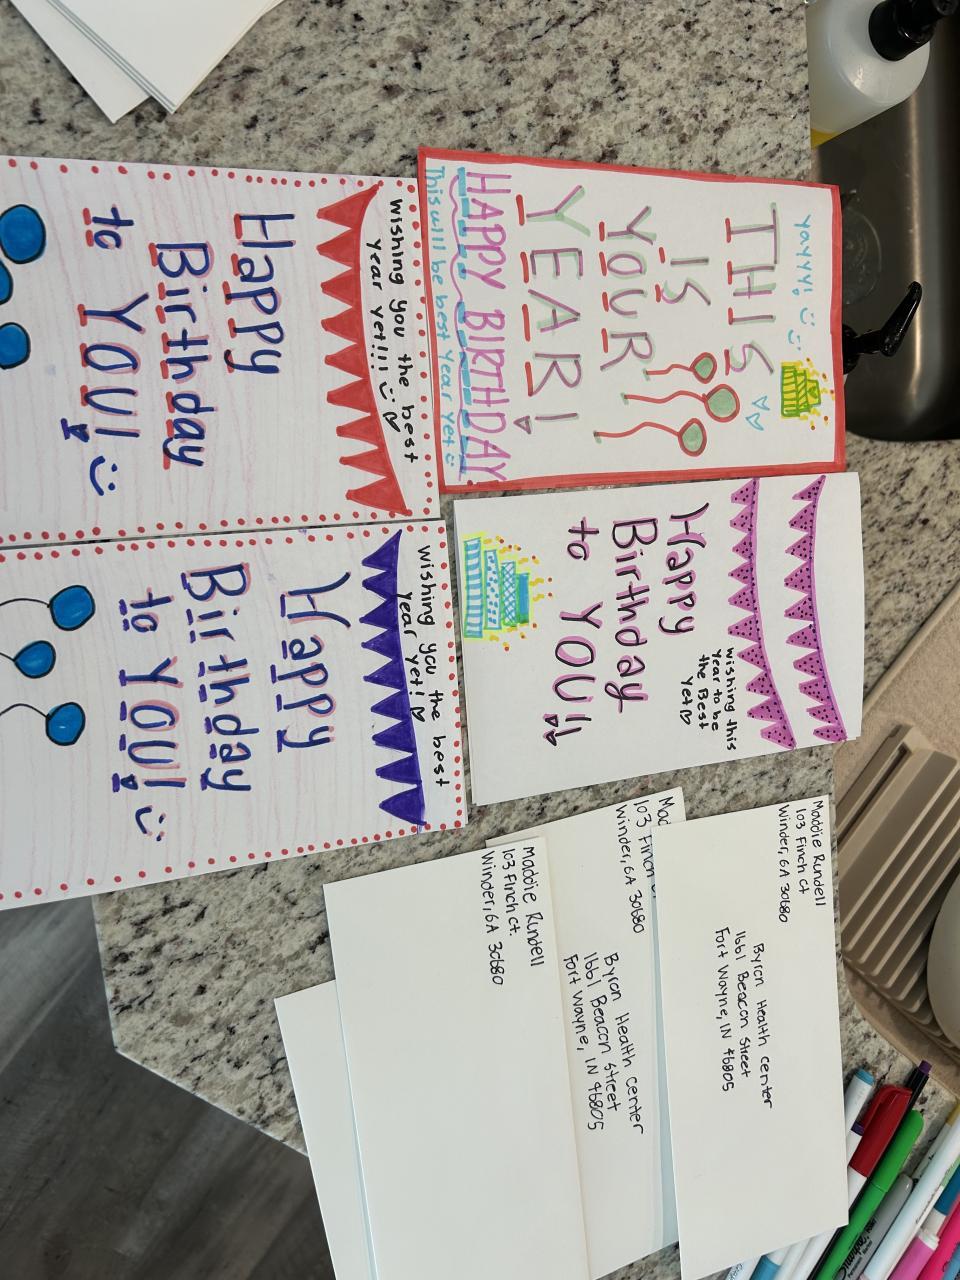 yayyy! :)
THIS
IS
YOUR
YEAR!
HAPPY BIRTHDAY
This will be best year yet :)
wishing you the best
year yet!!! :)
Happy
Birthday
to YOU! :)
wishing this
year to be
the Best
Yet
Happy
Birthday
to YOU!
wishing you the best
year yet!
Happy
Birthday
to YOU! :)
Maddie Rundell
103 Finch Ct
Winder, GA 30680
Byron Health center
1661 Beacon Street
Fort Wayne, IN 46805
103 Finch
Winder, GA 30680
Byron Health center
1661 Beacon Street
Fort Wayne, IN 46805
Maddie Rundell
103 Finch Ct.
Winder, GA 30680